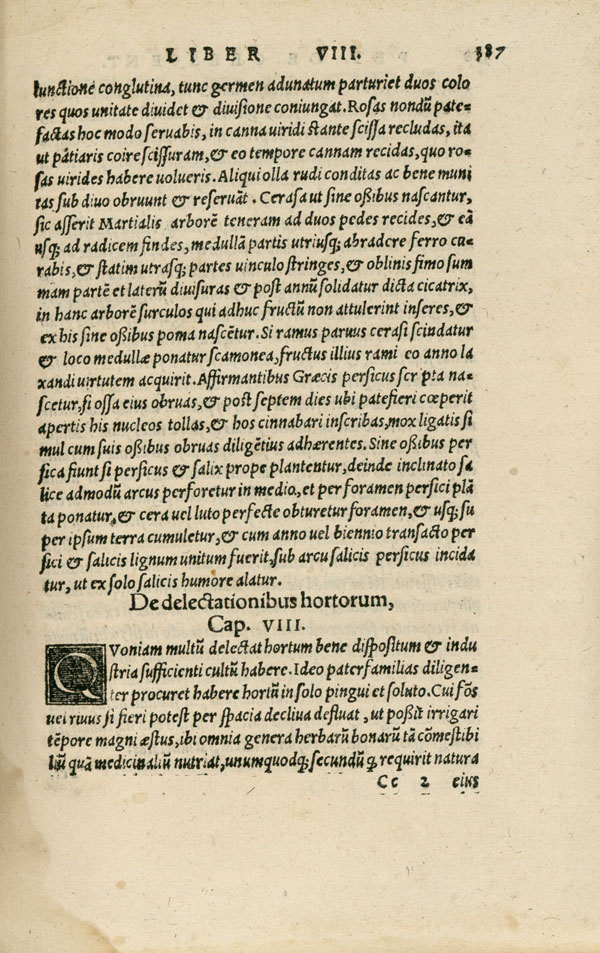 LIBER VIII. 387
iunctione conglutina, tunc germen adunatum parturiet duos colo
res quos unitate diuidet & diuisione coniungat. Rosas nondū pate-
factas hoc modo seruabis, in canna uiridi stante scissa recludas, ita
ut pātiaris coire scissuram, & eo tempore cannam recidas, quo ro-
sas uirides habere uolueris. Aliqui olla rudi conditas ac bene muni
tas sub diuo obruunt & reseruāt. Cerasa ut sine oßibus nascantur,
sic asserit Martialis arborē teneram ad duos pedes recides, & eā
usq; ad radicem findes, medullā partis utriusq; abradere ferro cu-
rabis, & statim utrasq; partes uinculo stringes, & oblinis fimo sum
mam partē et laterū diuisuras & post annū solidatur dicta cicatrix,
in hanc arborē surculos qui adhuc fructū non attulerint inseres, &
ex his sine oßibus poma nascētur. Si ramus paruus cerasi scindatur
& loco medullæ ponatur scamonea, fructus illius rami eo anno la
xandi uirtutem acquirit. Affirmantibus Græcis persicus scr pta na-
scetur, si ossa eius obruas, & post septem dies ubi patefieri cœperit
apertis his nucleos tollas, & hos cinnabari inscribas, mox ligatis si
mul cum suis oßibus obruas diligētius adhærentes. Sine oßibus per
sica fiunt si persicus & salix prope plantentur, deinde inclinato sa
lice admodū arcus perforetur in medio, et per foramen persici plā
ta ponatur, & cera uel luto perfecte obturetur foramen, & usq; su
per ipsum terra cumuletur, & cum anno uel biennio transacto per
sici & salicis lignum unitum fuerit, sub arcu salicis persicus incida
tur, ut ex solo salicis humore alatur.
De delectationibus hortorum,
Cap. VIII.
QVoniam multū delectat hortum bene dispositum & indu
stria sufficienti cultū habere. Ideo paterfamilias diligen-
ter procuret habere hortū in solo pingui et soluto. Cui fōs
uel riuus si fieri potest per spacia decliua defluat, ut poßit irrigari
tēpore magni æstus, ibi omnia genera herbarū bonarū tā comestibi
liū quā medicinaliū nutriat, unumquodq; secundū q, requirit natura
Cc 2 eius